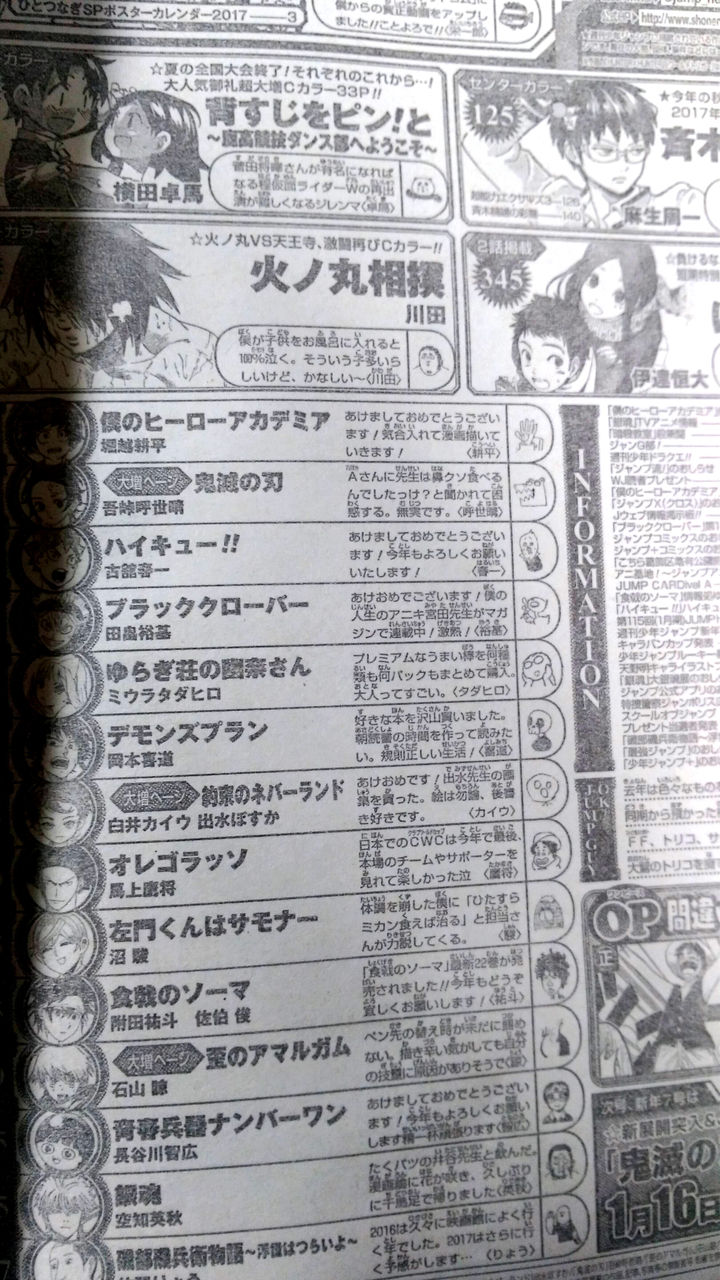 ひとつなぎSPポスターカレンダー2017――3
僕からの賀正動画をアップし
ました!!ことよろで!!〈栄一郎〉
http://www.shone
カラー
☆夏の全国大会終了!それぞれのこれから…!
大人気御礼超大増Cカラー33P!!
背すじをピン!と
～鹿高競技ダンス部へようこそ～
横田卓馬
菅田将暉さんが有名になれば
なる程仮面ライダーWの再出
演が難しくなるジレンマ〈卓馬〉
センターカラー
125
☆今年の秋
2017年
斉木
麻生周一
126
140
カラー
☆火ノ丸VS天王寺、激闘再びCカラー!!
火ノ丸相撲
川田
僕が子供をお風呂に入れると
100%泣く。そういう子多いら
しいけど、かなしい～〈川田〉
2話掲載
345
☆負けるな
伊達恒大
僕のヒーローアカデミア
堀越耕平
あけましておめでとうござい
ます!気合入れて漫画描いて
いきます! 〈耕平〉
大増ページ 鬼滅の刃
吾峠呼世晴
Aさんに先生は鼻クソ食べる
んでしたっけ?と聞かれて困
惑する。無実です。〈呼世晴〉
ハイキュー!!
古舘春一
あけましておめでとうござい
ます!今年もよろしくお願い
いたします! 〈春一〉
ブラッククローバー
田畠裕基
あけおめでございます!僕の
人生のアニキ宮田先生がマガ
ジンで連載中!激熱!〈裕基〉
ゆらぎ荘の幽奈さん
ミウラタダヒロ
プレミアムなうまい棒を何種
類も何パックもまとめて購入。
大人ってすごい。〈タダヒロ〉
デモンズプラン
岡本喜道
好きな本を沢山買いました。
朝読書の時間を作って読みた
い。規則正しい生活!〈喜道〉
大増ページ 約束のネバーランド
白井カイウ 出水ぽすか
あけおめです!出水先生の画
集を買った。絵は勿論、後書
き好きです。 〈カイウ〉
オレゴラッソ
馬上鷹将
日本でのCWCは今年で最後、
本場のチームやサポーターを
見れて楽しかった泣 〈鷹将〉
左門くんはサモナー
沼 駿
体調を崩した僕に「ひたすら
ミカン食えば治る」と担当さ
んが力説してくる。 〈駿〉
食戟のソーマ
附田祐斗 佐伯 俊
「食戟のソーマ」最新22巻が発
売されました!!今年もどうぞ
宜しくお願いします!〈祐斗〉
大増ページ 歪のアマルガム
石山 諒
ペン先の替え時が未だに掴め
ない。描き辛い気がしても自分
の技量に原因がありそうで〈諒〉
青春兵器ナンバーワン
長谷川智広
あけましておめでとうござい
ます!今年もよろしくお願い
します精一杯頑張ります〈智広〉
銀魂
空知英秋
たくパツの井谷先生と飲んだ。
漫画論に花が咲き、久しぶり
に千鳥足で帰りました〈英秋〉
磯部磯兵衛物語～浮世はつらいよ～
2016は久々に映画館によく行
く年でした。2017はさらに行
く予感がします… 〈りょう〉
INFORMATION
「僕のヒーローアカデミア」
「銀魂」TVアニメ情報
ジャンG部!
週刊少年ドラクエ!!
「ジャンプ流!」のおしらせ
WJ読者プレゼント
「ジャンプX(クロス)」のお
Jウェブ情報掲示板!!
「ブラッククローバー」第1
ジャンプコミックスのお
ジャンプ+コミックスのお
アニ基地!～ジャンプアニ
JUMP CARDival A
「食戟のソーマ」情報
「ハイキュー!!」ハイキュ
第115回(1月期)JUMPト
週刊少年ジャンプ新年
キャラバンカップ発表
少年ジャンプルーキー
天野明キャライラスト
「銀魂」大銀魂展のおし
ジャンプ公式アプリのお
スクールオブジャンプ
プレゼント当選者発表
「最強ジャンプ」のおし
「少年ジャンプ+」のおし
去年は色々なものを
FF、トリコ、サ
大量のトリコを
OP間違
正
次号、新年7号は
☆新展開突入&
「鬼滅の
1月16日